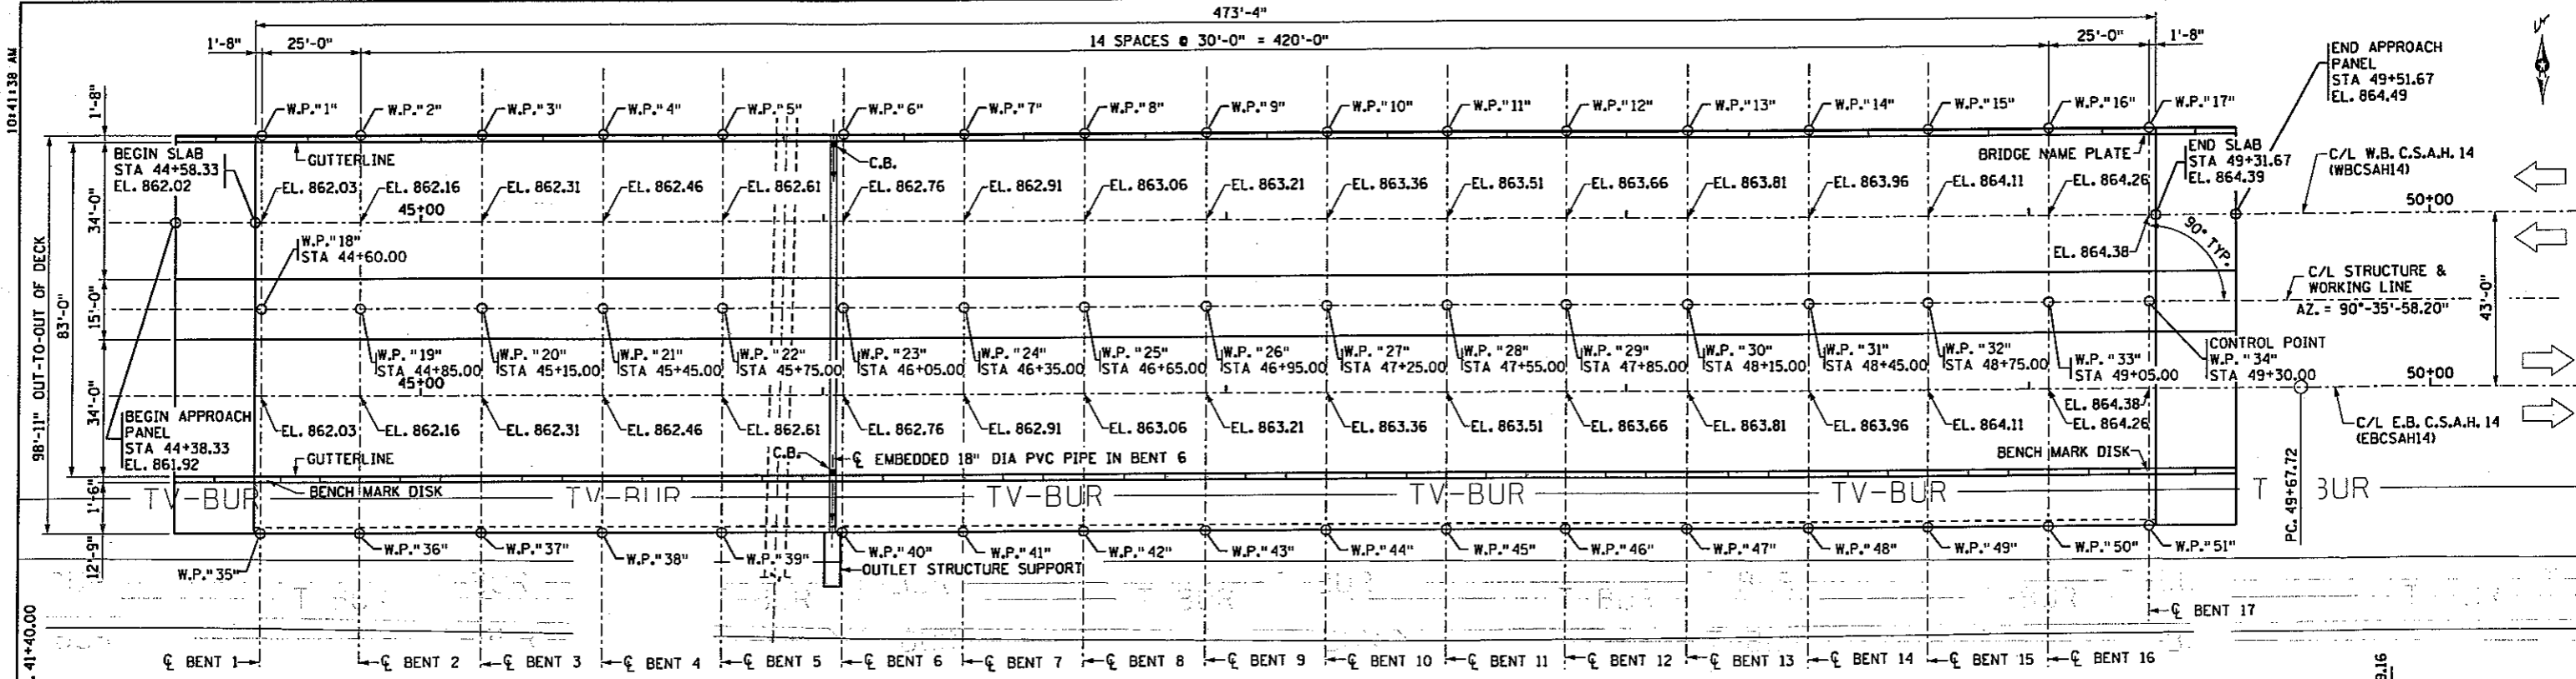 473'-4"
1'-8"
25'-0"
14 SPACES @ 30'-0" = 420'-0"
25'-0"
1'-8"
10:41:38 AM
END APPROACH
PANEL
STA 49+51.67
EL. 864.49
1'-8"
W.P."1"
W.P."2"
W.P."3"
W.P."4"
W.P."5"
W.P."6"
W.P."7"
W.P."8"
W.P."9"
W.P."10"
W.P."11"
W.P."12"
W.P."13"
W.P."14"
W.P."15"
W.P."16"
W.P."17"
BEGIN SLAB
STA 44+58.33
EL. 862.02
GUTTERLINE
C.B.
BRIDGE NAME PLATE
END SLAB
STA 49+31.67
EL. 864.39
C/L W.B. C.S.A.H. 14
(WBCSAH14)
EL. 862.03
EL. 862.16
EL. 862.31
EL. 862.46
EL. 862.61
EL. 862.76
EL. 862.91
EL. 863.06
EL. 863.21
EL. 863.36
EL. 863.51
EL. 863.66
EL. 863.81
EL. 863.96
EL. 864.11
EL. 864.26
45+00
50+00
34'-0"
W.P."18"
STA 44+60.00
EL. 864.38
90° TYP.
98'-11" OUT-TO-OUT OF DECK
83'-0"
15'-0"
C/L STRUCTURE &
WORKING LINE
AZ. = 90°-35'-58.20"
43'-0"
W.P. "19"
STA 44+85.00
W.P. "20"
STA 45+15.00
W.P. "21"
STA 45+45.00
W.P. "22"
STA 45+75.00
W.P. "23"
STA 46+05.00
W.P. "24"
STA 46+35.00
W.P. "25"
STA 46+65.00
W.P. "26"
STA 46+95.00
W.P. "27"
STA 47+25.00
W.P. "28"
STA 47+55.00
W.P. "29"
STA 47+85.00
W.P. "30"
STA 48+15.00
W.P. "31"
STA 48+45.00
W.P. "32"
STA 48+75.00
W.P. "33"
STA 49+05.00
CONTROL POINT
W.P. "34"
STA 49+30.00
45+00
50+00
34'-0"
BEGIN APPROACH
PANEL
STA 44+38.33
EL. 861.92
EL. 862.03
EL. 862.16
EL. 862.31
EL. 862.46
EL. 862.61
EL. 862.76
EL. 862.91
EL. 863.06
EL. 863.21
EL. 863.36
EL. 863.51
EL. 863.66
EL. 863.81
EL. 863.96
EL. 864.11
EL. 864.38
EL. 864.26
C/L E.B. C.S.A.H. 14
(EBCSAH14)
GUTTERLINE
C.B.
℄ EMBEDDED 18" DIA PVC PIPE IN BENT 6
BENCH MARK DISK
PC. 49+67.72
1'-6"
BENCH MARK DISK
TV-BUR
TV-BUR
TV-BUR
TV-BUR
TV-BUR
T BUR
12'-9"
W.P."35"
W.P."36"
W.P."37"
W.P."38"
W.P."39"
W.P."40"
W.P."41"
W.P."42"
W.P."43"
W.P."44"
W.P."45"
W.P."46"
W.P."47"
W.P."48"
W.P."49"
W.P."50"
W.P."51"
OUTLET STRUCTURE SUPPORT
℄ BENT 17
41+40.00
℄ BENT 1
℄ BENT 2
℄ BENT 3
℄ BENT 4
℄ BENT 5
℄ BENT 6
℄ BENT 7
℄ BENT 8
℄ BENT 9
℄ BENT 10
℄ BENT 11
℄ BENT 12
℄ BENT 13
℄ BENT 14
℄ BENT 15
℄ BENT 16